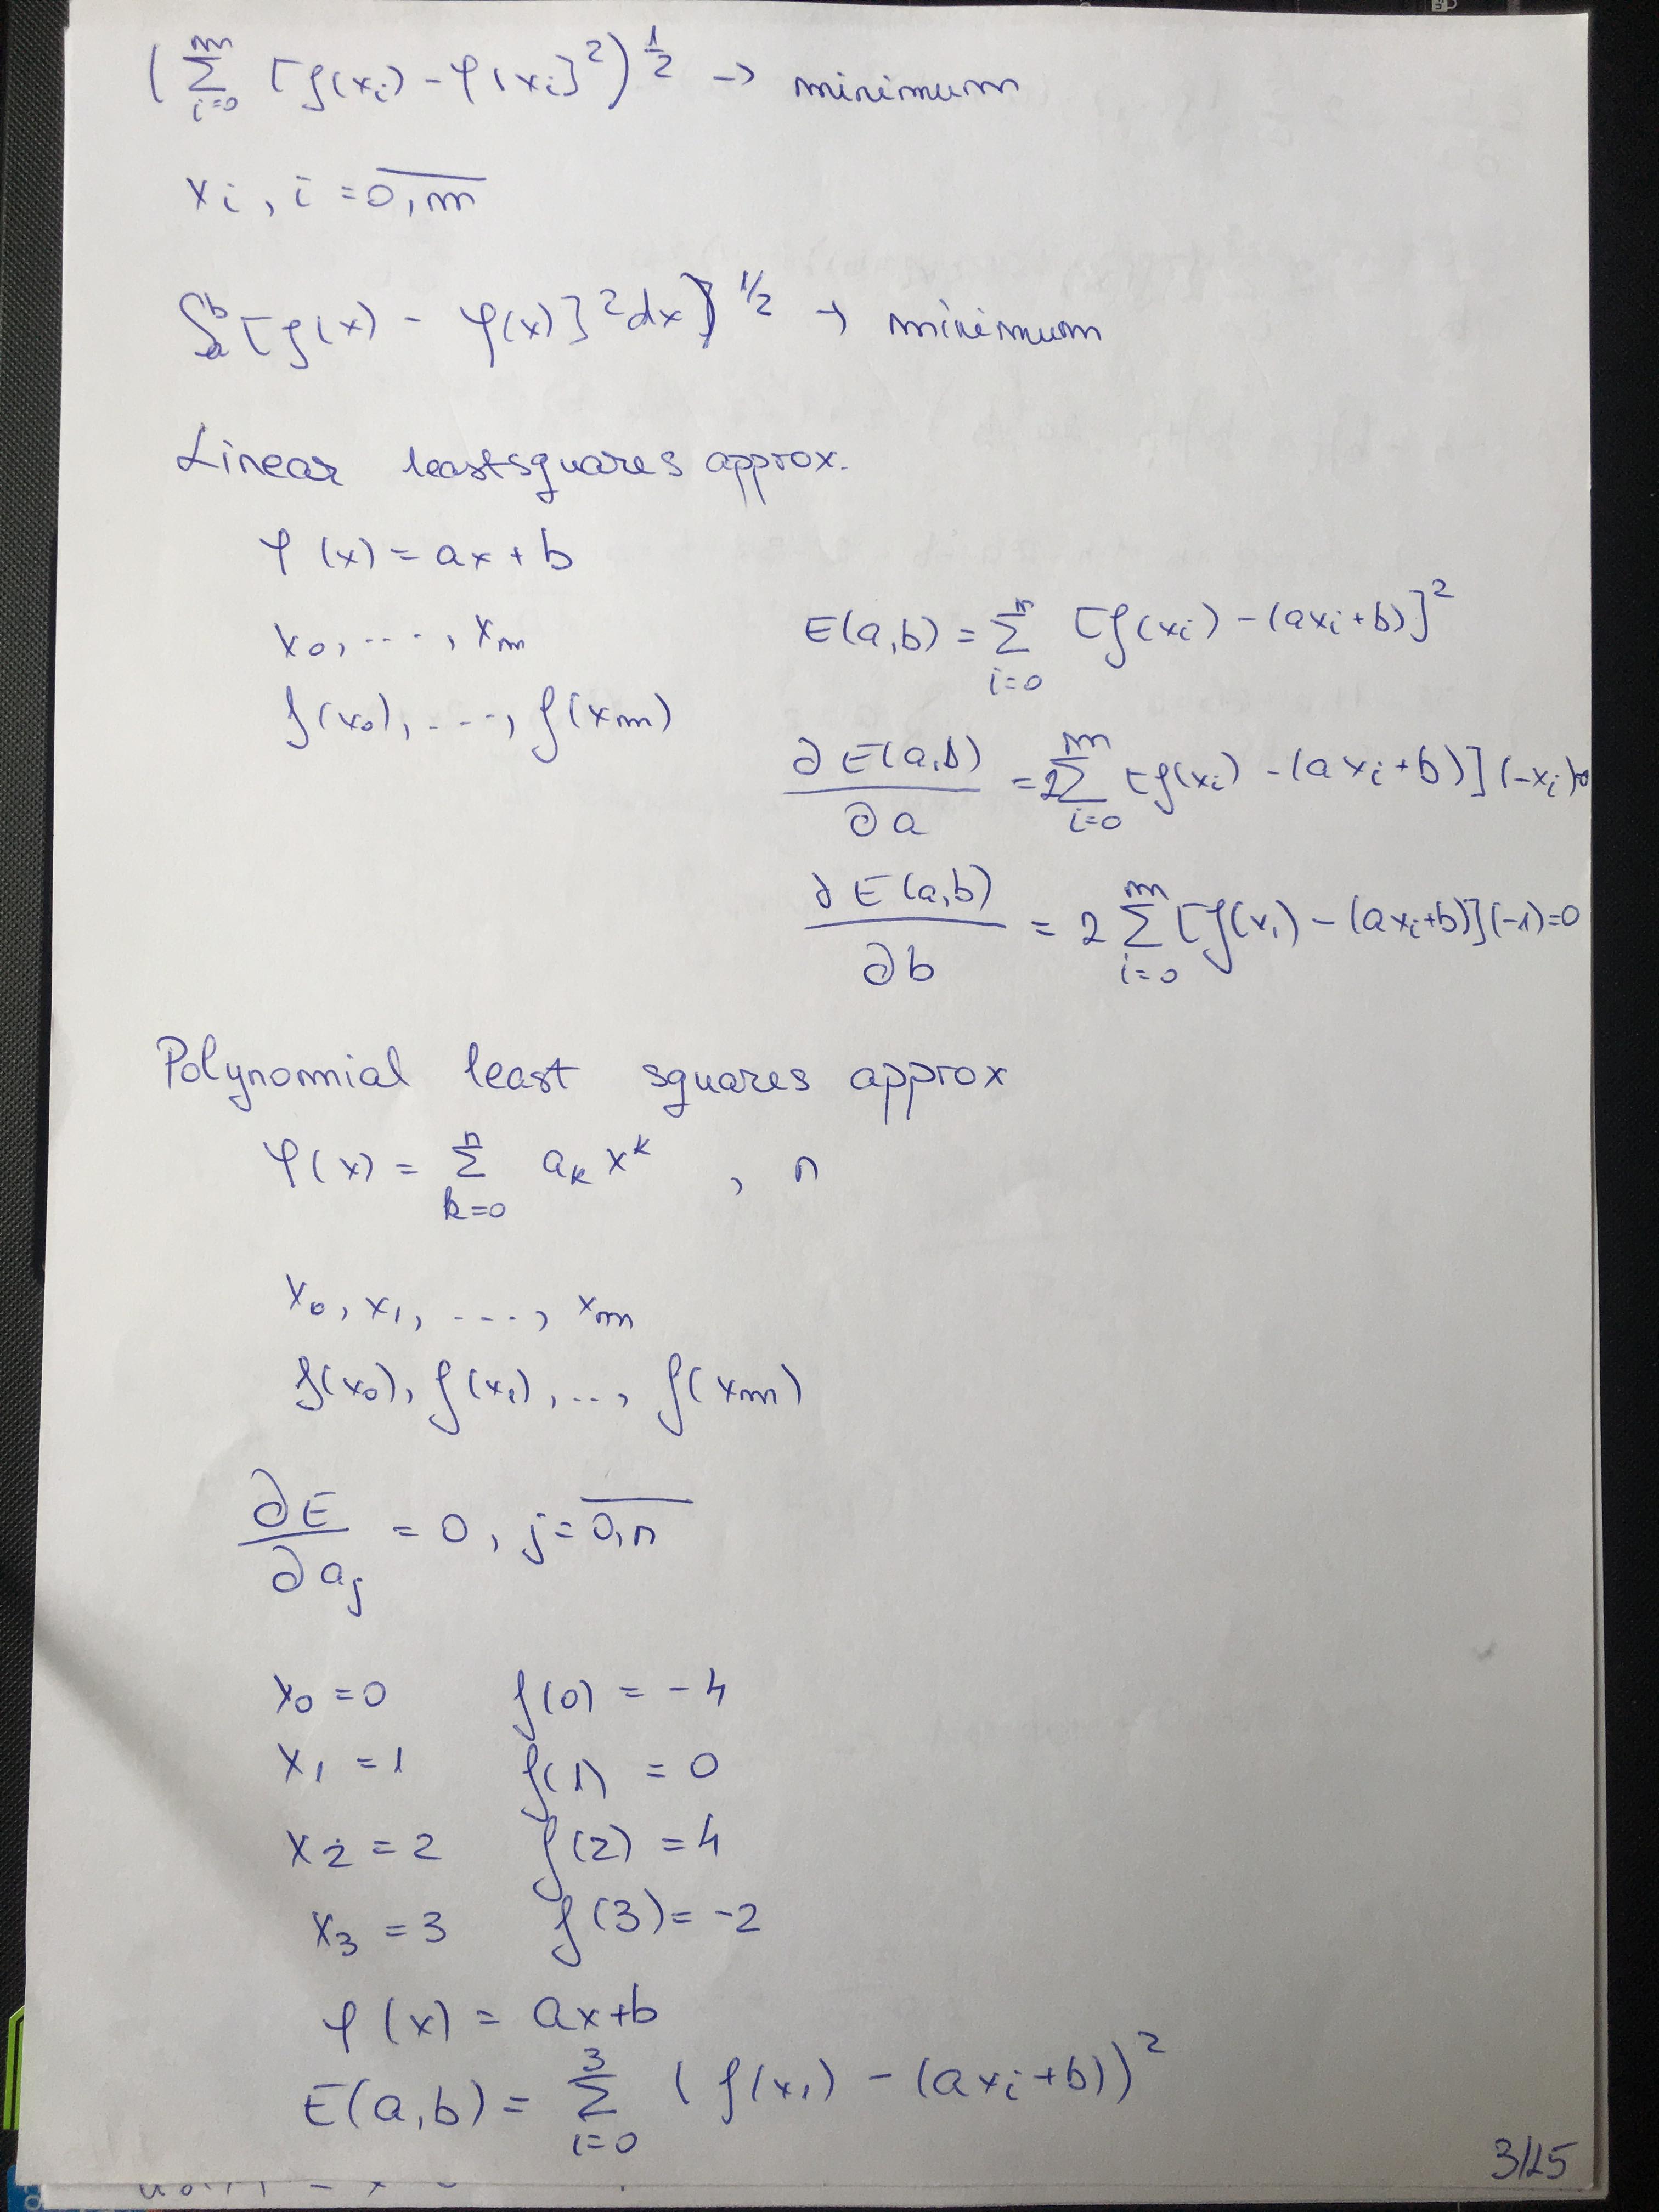 (∑_{i=0}^{m} [f(xᵢ) - φ(xᵢ]²)^{1/2} → minimum
xᵢ, i = \overline{0,m}
∫_a^b [f(x) - φ(x)]² dx)^{1/2} → minimum
Linear least squares approx.
φ(x) = ax + b
x₀, ...., xₘ
E(a,b) = ∑_{i=0}^{n} [f(xᵢ) - (axᵢ + b)]²
f(x₀), ...., f(xₘ)
∂E(a,b)/∂a = 2∑_{i=0}^{m} [f(xᵢ) - (axᵢ + b)](-xᵢ)=0
∂E(a,b)/∂b = 2 ∑_{i=0}^{m} [f(xᵢ) - (axᵢ+b)](-1)=0
Polynomial least squares approx
φ(x) = ∑_{k=0}^{n} aₖ xᵏ , n
x₀, x₁, ...., xₘ
f(x₀), f(x₁), ..., f(xₘ)
∂E/∂aⱼ = 0, j = \overline{0,n}
x₀ = 0 f(0) = -4
x₁ = 1 f(1) = 0
x₂ = 2 f(2) = 4
x₃ = 3 f(3) = -2
φ(x) = ax+b
E(a,b) = ∑_{i=0}^{3} (f(xᵢ) - (axᵢ+b))²
3/15